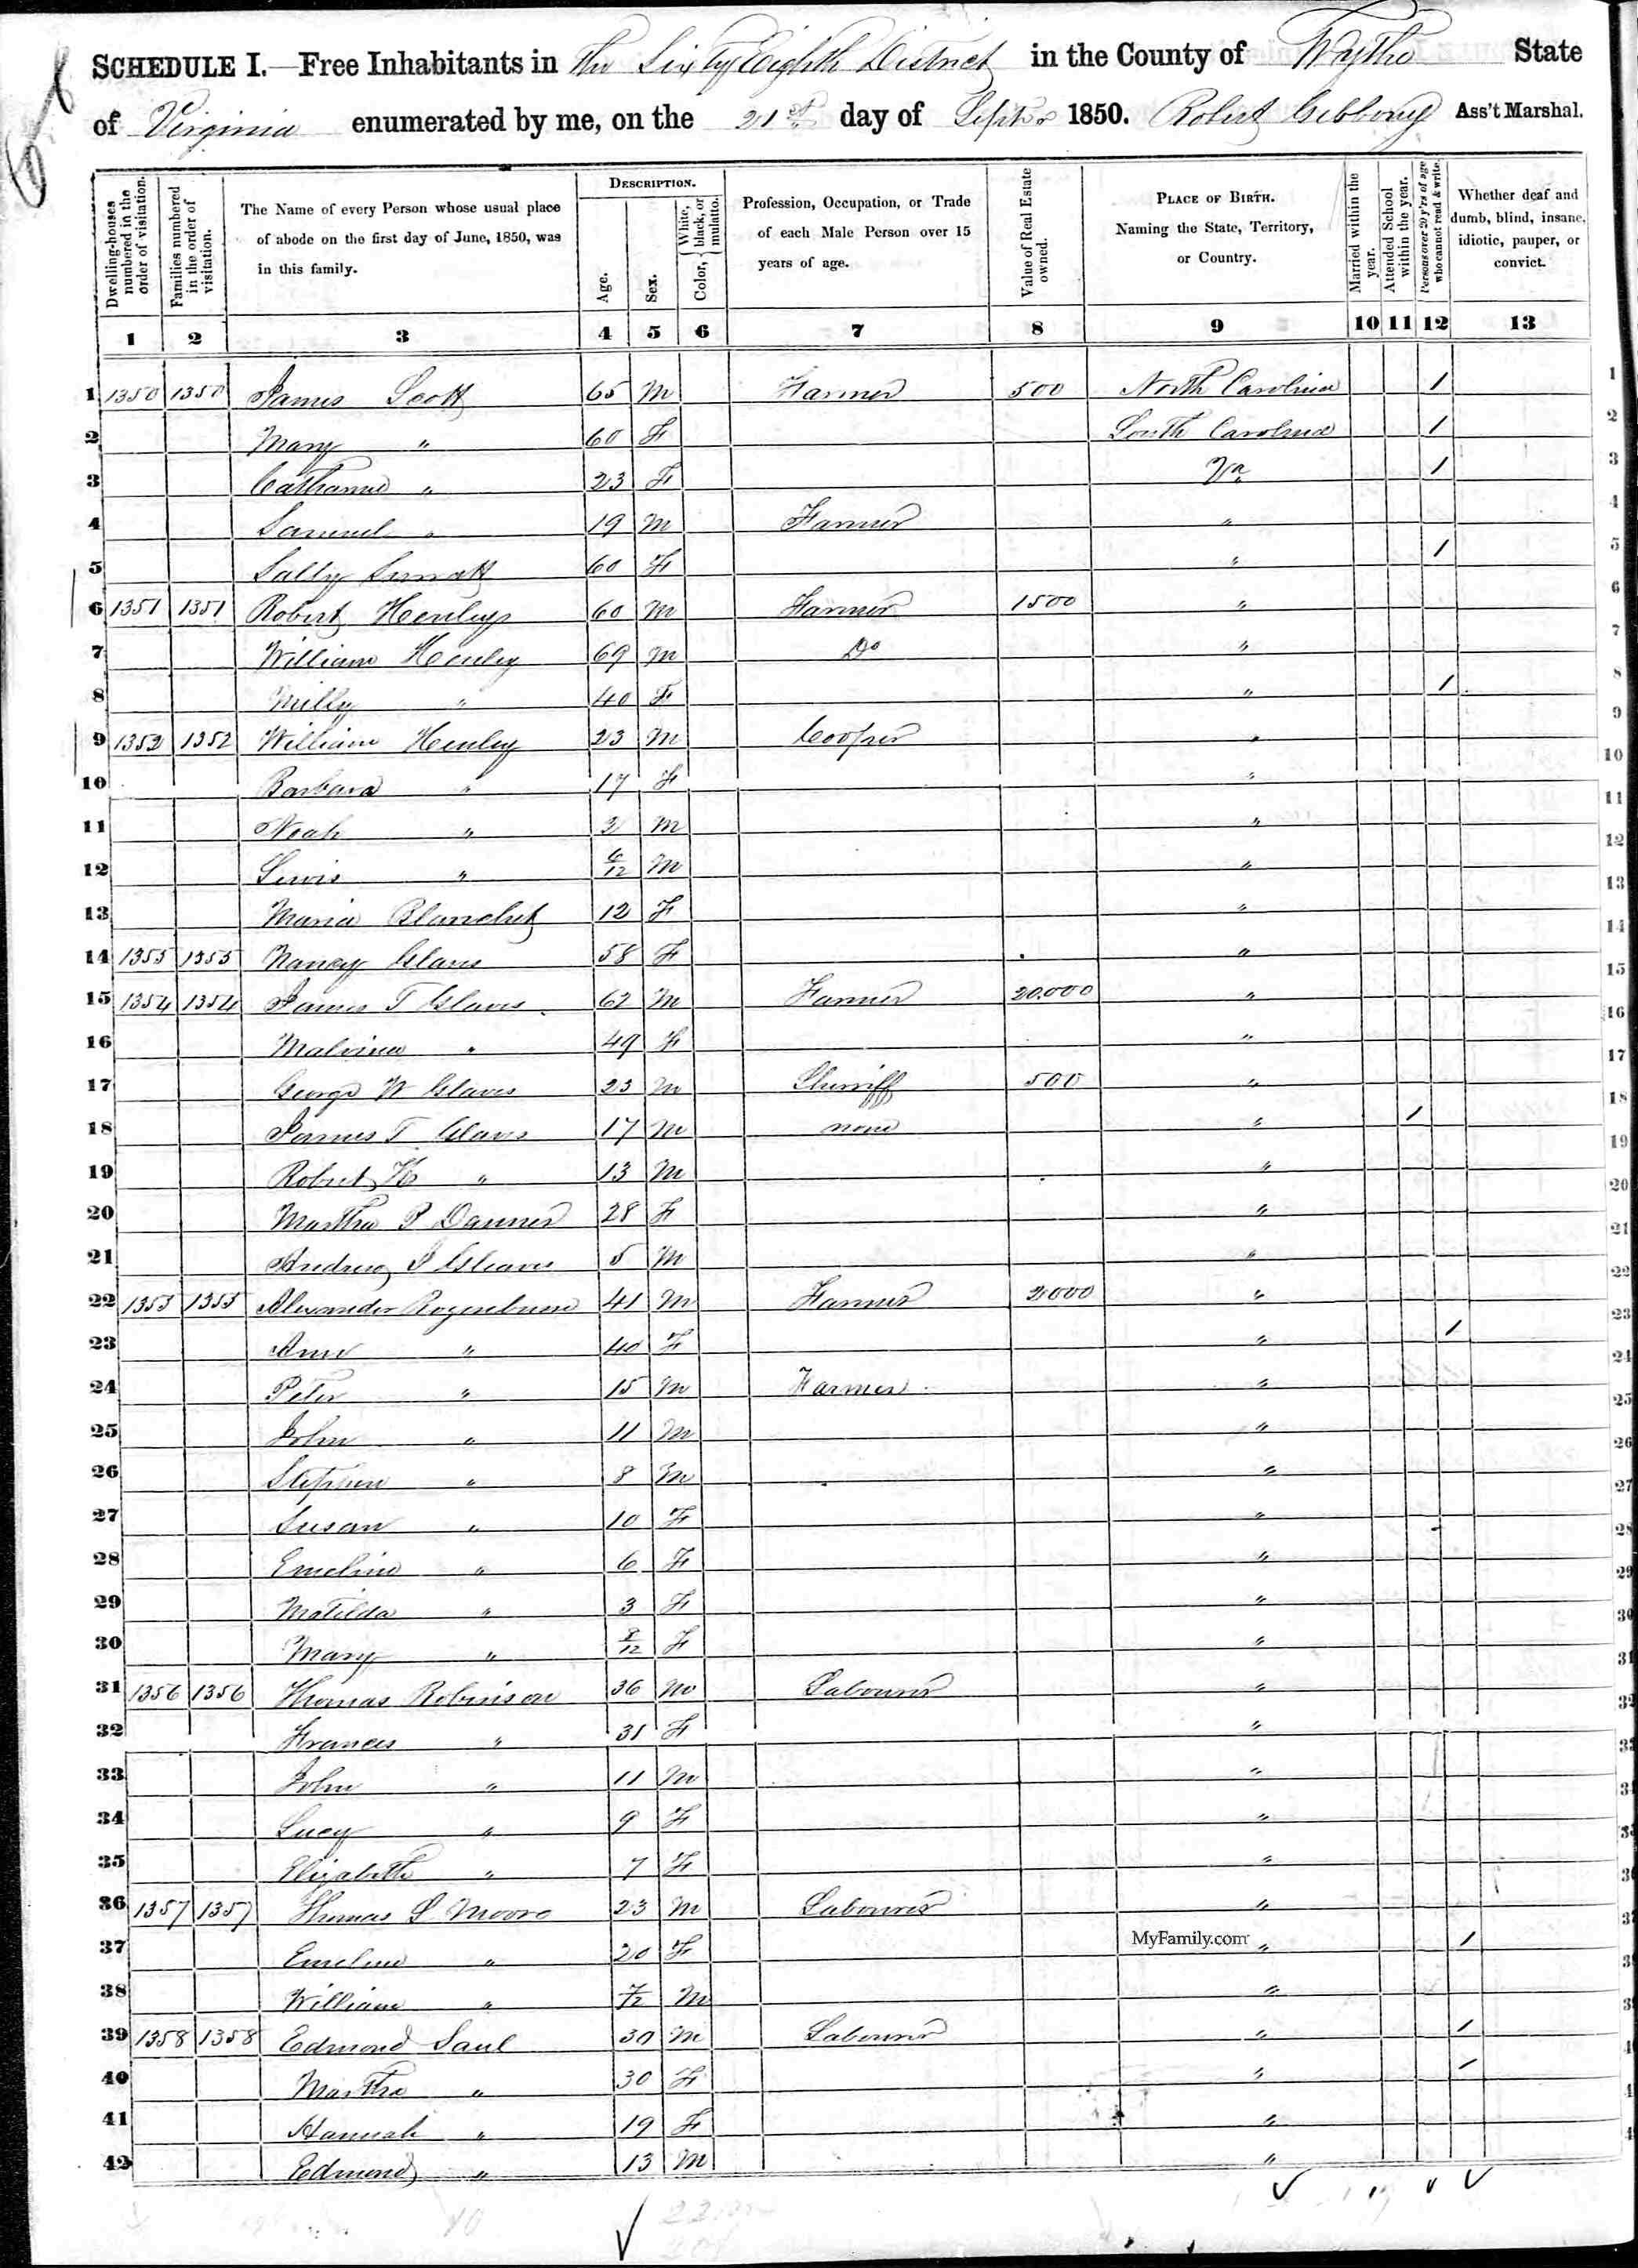 SCHEDULE I.—Free Inhabitants in the Sixty Eighth District in the County of Wythe State
of Virginia enumerated by me, on the 21st day of Septr 1850. Robert Gibboney Ass't Marshal.
Dwelling-houses numbered in the order of visitation.
Families numbered in the order of visitation.
The Name of every Person whose usual place of abode on the first day of June, 1850, was in this family.
DESCRIPTION.
Age.
Sex.
Color, White, black, or mulatto.
Profession, Occupation, or Trade of each Male Person over 15 years of age.
Value of Real Estate owned.
PLACE OF BIRTH. Naming the State, Territory, or Country.
Married within the year.
Attended School within the year.
Persons over 20 y'rs of age who cannot read & write.
Whether deaf and dumb, blind, insane, idiotic, pauper, or convict.
1 2 3 4 5 6 7 8 9 10 11 12 13
1 1350 1350 James Scott 65 M Farmer 500 North Carolina 1
2 Mary " 60 F South Carolina 1
3 Catharine " 23 F Va 1
4 Samuel " 19 M Farmer "
5 Sally 60 F " 1
6 1351 1351 Robert Henley 60 M Farmer 1500 "
7 William Henley 69 M Do "
8 Milly " 40 F " 1
9 1352 1352 William Henley 23 M Cooper "
10 Barbara " 17 F "
11 Noah " 2 M "
12 Lewis " 6/12 M "
13 Maria 12 F "
14 1353 1353 Nancy Glaves 58 F "
15 1354 1354 James T Glaves 62 M Farmer 20.000 "
16 Malvina " 49 F "
17 George W Glaves 23 M Sherriff 500 "
18 James T Glaves 17 M none " 1
19 Robert " 13 M "
20 Martha P Danner 28 F "
21 Andrew S Gleaves 5 M "
22 1355 1355 Alexander Rosenbum 41 M Farmer 2000 "
23 Ann " 40 F " 1
24 Peter " 15 M Farmer "
25 John " 11 M "
26 Stephen " 8 M "
27 Susan " 10 F "
28 Emeline " 6 F "
29 Matilda " 3 F "
30 Mary " 8/12 F "
31 1356 1356 Thomas Robinson 36 M Labourer "
32 Frances " 31 F "
33 John " 11 M "
34 Lucy " 9 F "
35 Elizabeth " 7 F "
36 1357 1357 Thomas S Moore 23 M Labourer "
MyFamily.com
37 Emeline " 20 F " 1
38 William " 7/12 M "
39 1358 1358 Edmond Saul 30 M Labourer " 1
40 Martha " 30 F " 1
41 Hannah " 19 F "
42 Edmond " 13 M "